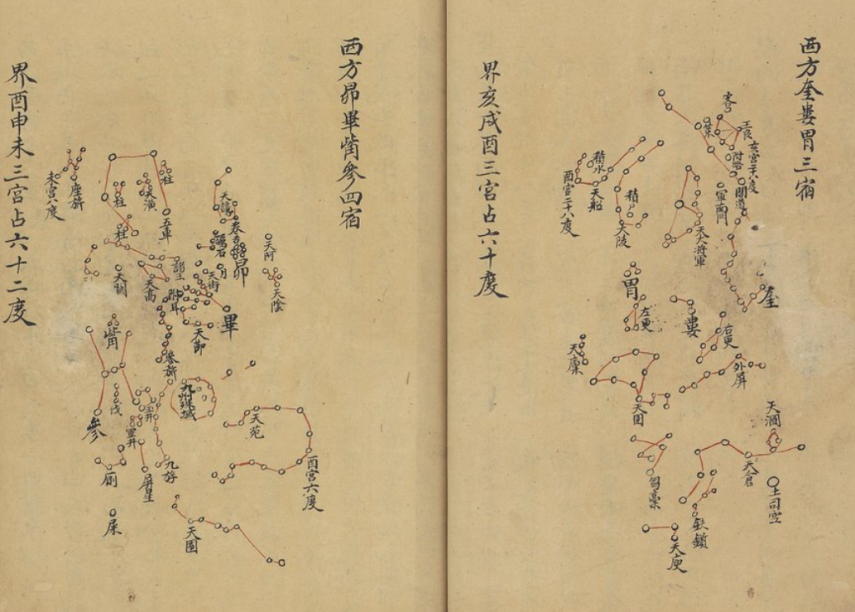 西方奎婁胃三宿
策
王良
附路
閣道
軍南門
戌宮二十八度
積水
天船
酉宮二十八度
積尸
天陵
天大將軍
奎
胃
左更
婁
右更
天廩
外屏
天囷
天溷
芻藁
天倉
土司空
鈇鑕
天庾
界亥戌酉三宮占六十度
西方昴畢觜參四宿
天讒
卷舌
礪石
月
昴
天阿
天陰
柱
天潢
柱
五車
柱
座旗
未宮八度
諸王
天街
天高
附耳
天關
畢
天節
觜
參旗
九州殊域
參
伐
玉井
軍井
天苑
酉宮六度
厠
屏星
九斿
屎
天園
界酉申未三宮占六十二度